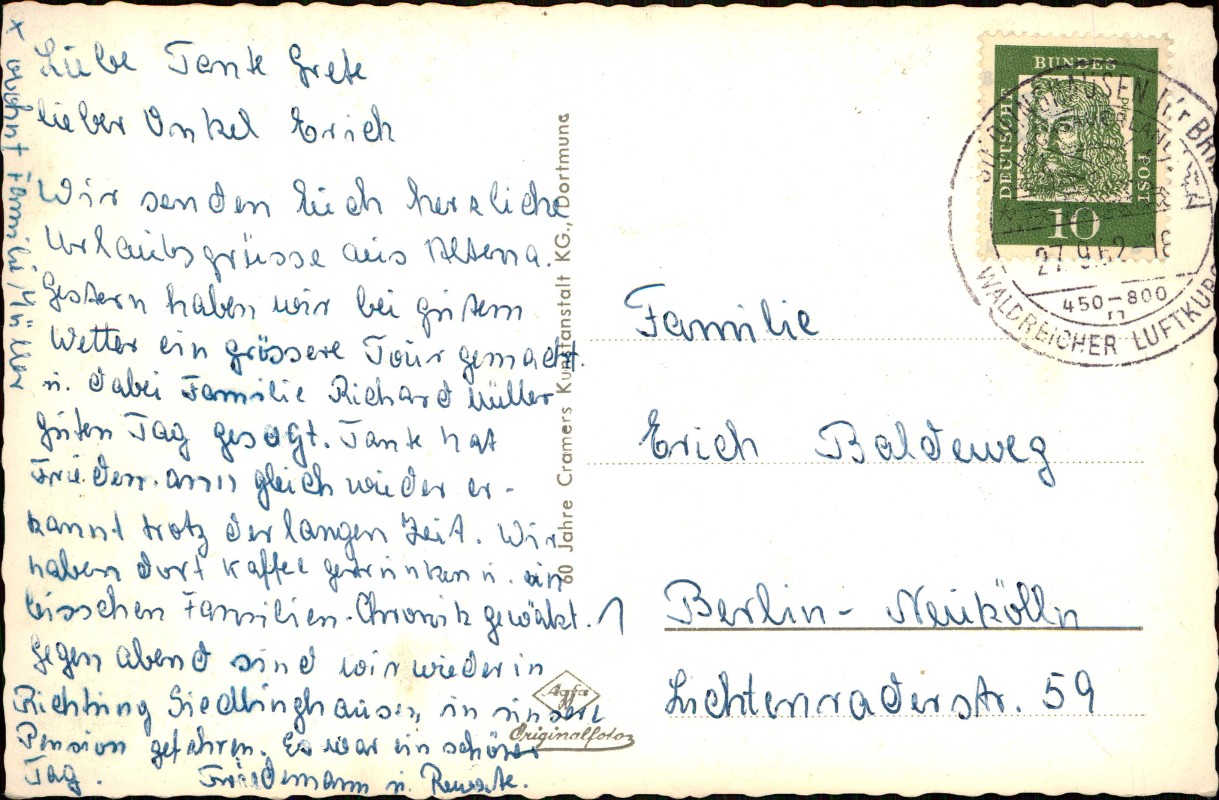 Liebe Tante Grete
lieber Onkel Erich
Wir senden Euch herzliche
Urlaubsgrüsse aus Altena.
Gestern haben wir bei gutem
Wetter ein grössere Tour gemacht.
u. dabei Familie Richard Müller
guten Tag gesagt. Tante hat
Friedemann gleich wieder er-
kannt trotz der langen Zeit. Wir
haben dort Kaffee getrunken u. ein
bisschen Familien-Chronik gewälzt.
Gegen Abend sind wir wieder in
Richtung Siedlinghausen, in unsere
Pension gefahren. Es war ein schöner
Tag. Friedemann u.
x wohnt Familie Müller
60 Jahre Cramers Kunstanstalt KG., Dortmund
Agfa
Originalfoto
DEUTSCHE
BUNDES
POST
10
27.9.62-18
450-800
m
WALDREICHER LUFTKUR
Familie
Erich Baldeweg
1 Berlin-Neukölln
Lichtenraderstr. 59